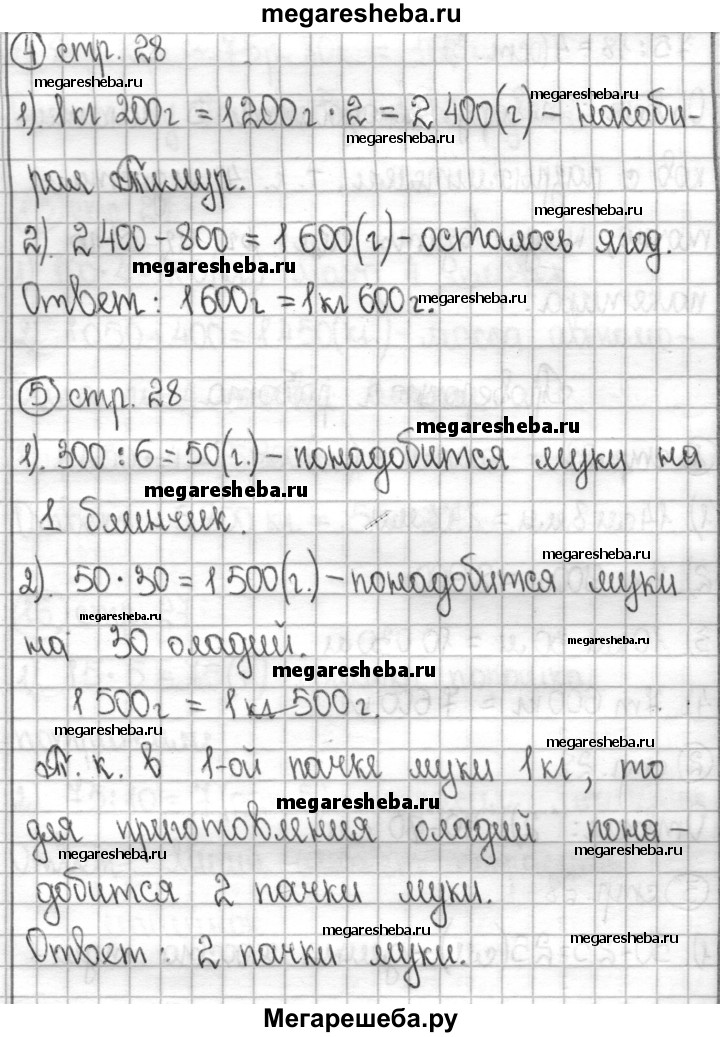 megaresheba.ru
4 стр. 28
megaresheba.ru
1). 1кг 200г = 1200г · 2 = 2 400(г) – насоби-
megaresheba.ru
megaresheba.ru
рал Тимур.
megaresheba.ru
2). 2 400 – 800 = 1 600(г) – осталось ягод.
megaresheba.ru
Ответ: 1 600г = 1кг 600г.
megaresheba.ru
5 стр. 28
megaresheba.ru
1). 300 : 6 = 50(г.) – понадобится муки на
megaresheba.ru
1 блинчик.
megaresheba.ru
2). 50 · 30 = 1 500(г.) – понадобится муки
megaresheba.ru
на 30 оладий.
megaresheba.ru
megaresheba.ru
1 500г = 1кг 500г.
megaresheba.ru
megaresheba.ru
Т. к. в 1-ой пачке муки 1кг, то
megaresheba.ru
для приготовления оладий пона-
megaresheba.ru
megaresheba.ru
добится 2 пачки муки.
megaresheba.ru
megaresheba.ru
Ответ: 2 пачки муки.
Мегарешеба.ру